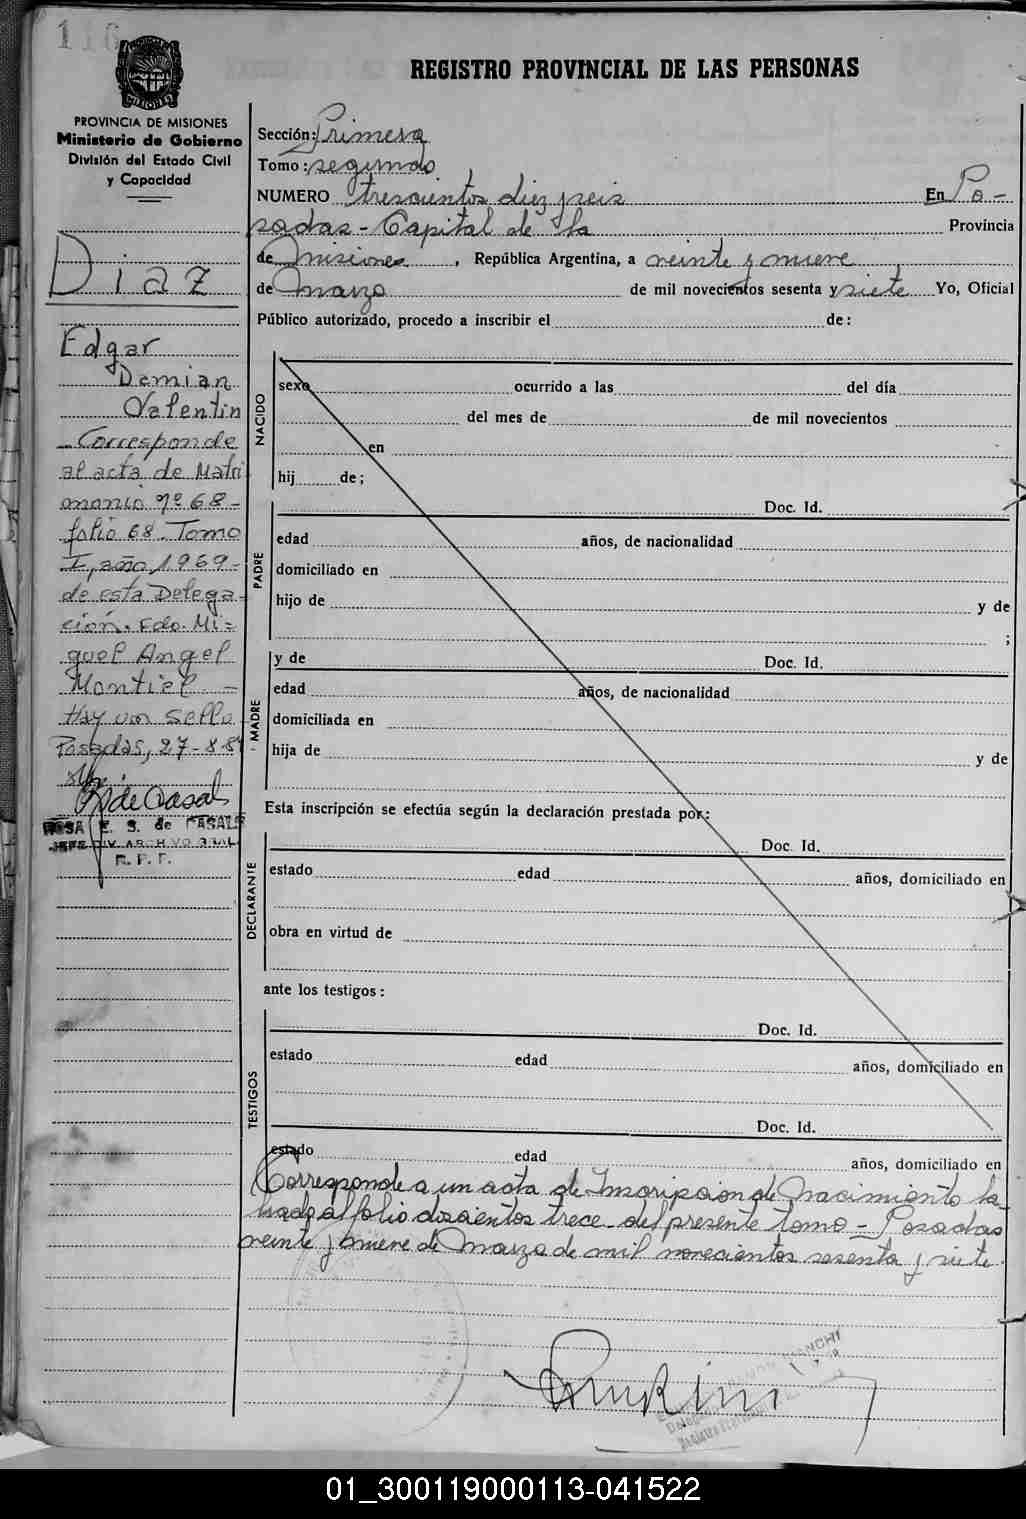 116
PROVINCIA DE MISIONES
Ministerio de Gobierno
División del Estado Civil
y Capacidad
REGISTRO PROVINCIAL DE LAS PERSONAS
Sección: Primera
Tomo: segundo
NUMERO trescientos diez y seis En Po-
sadas - Capital de la Provincia
de Misiones, República Argentina, a veinte y nueve
de Marzo de mil novecientos sesenta y siete Yo, Oficial
Público autorizado, procedo a inscribir el de:
Diaz
Edgar
Damian
Valentin
Corresponde
al acta de Matri
monio nº 68-
folio 68. Tomo
I, año 1969-
de esta Delega-
ción. Fdo. Mi=
guel Angel
Montiel -
Hay un sello
Posadas, 27-8-8
R de Casals
ROSA E. S. de CASALS
JEFE DIV. ARCHIVO GRAL.
R. P. P.
NACIDO
sexo ocurrido a las del día
del mes de de mil novecientos
en
hij de;
PADRE
Doc. Id.
edad años, de nacionalidad
domiciliado en
hijo de y de
;
MADRE
y de Doc. Id.
edad años, de nacionalidad
domiciliada en
hija de y de
Esta inscripción se efectúa según la declaración prestada por:
DECLARANTE
Doc. Id.
estado edad años, domiciliado en
obra en virtud de
ante los testigos:
TESTIGOS
Doc. Id.
estado edad años, domiciliado en
Doc. Id.
estado edad años, domiciliado en
Corresponde a un acta de Inscripcion de Nacimiento la
brada al folio doscientos trece del presente tomo - Posadas
veinte y nueve de Marzo de mil novecientos sesenta y siete.
01_300119000113-041522